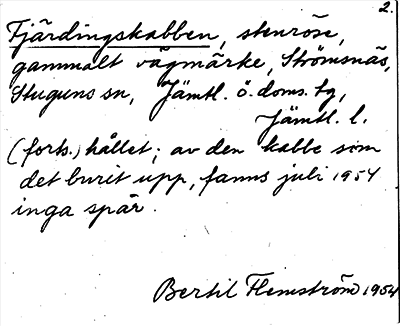 2.
Fjärdingskabben, stenröse,
gammalt vägmärke, Strömsnäs,
Stuguns sn, Jämtl. ö. doms. tg,
Jämtl. l.
(forts.) hållet; av den kabbe som
det burit upp, fanns juli 1954
inga spår.
Bertil Flemström 1954